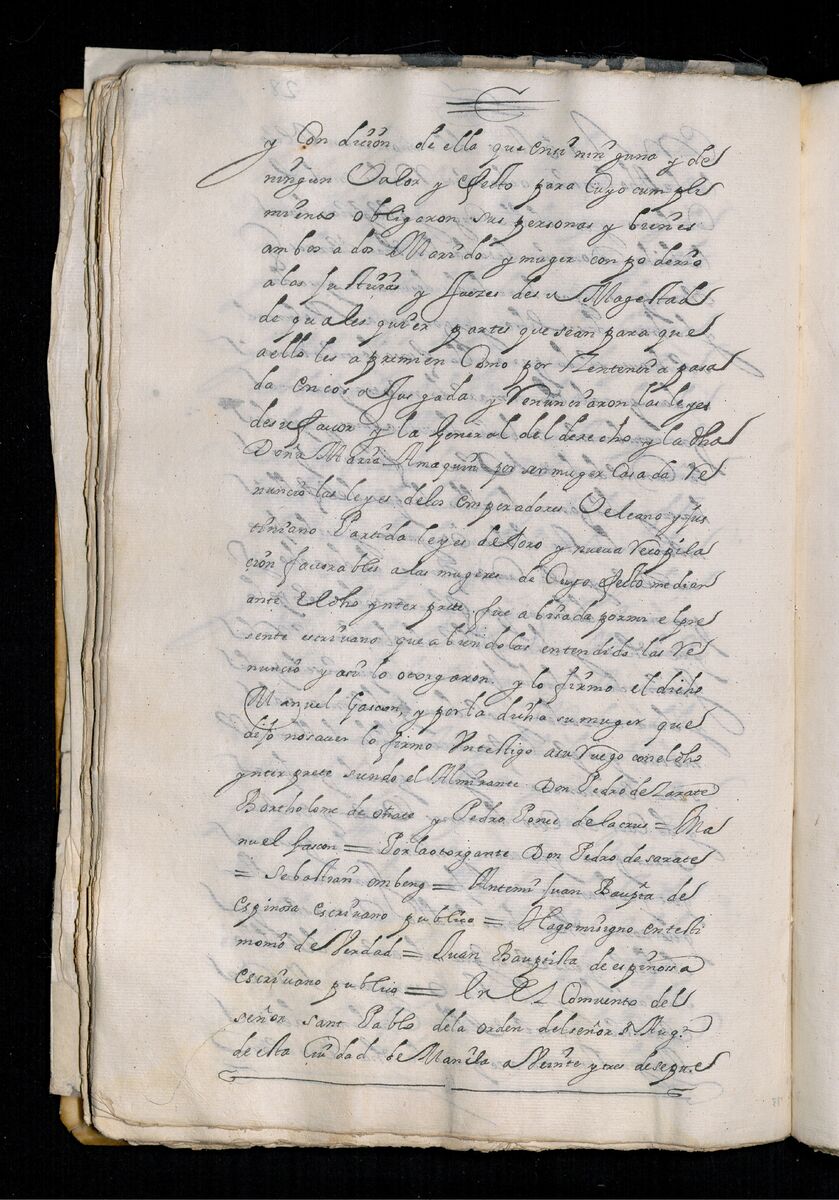 y Condision de ella que en si ninguna y de
ningun Valor y efecto para Cuyo cumpli
miento obligaron sus personas y bienes
ambos a dos Marido y muger con poderio
a las Justicias y Juezes de su Magestad
de quales quier partes que sean para que
a ello les apremien Como por Zentencia pasa
da en cosa Jusgada y Renunciaron las leyes
de su fauor y la General del derecho y la dha
Doña Maria Amaquin por ser muger Casada Re
nuncio las leyes delos emperadores Veleano y Jus
tiniano Partida leyes de toro y nueva Recopila
cion fauorables a las mugeres de Cuyo efecto median
ante el dho ynterprete fue abisada por mi el pre
sente escriuano que abiendolas entendido las Re
nuncio y asi lo otorgaron y lo firmo el dicho
Manuel Gascon, y por la dicha su muger que
dijo no sauer lo firmo Un testigo a su Ruego con el dho
ynterprete siendo el Almirante Don Pedro de Zarate
Bartholome de oñate y Pedro Ponce de la crus = Ma
nuel Gascon = Por la otorgante Don Pedro de sarate
= Sebastian = Antemi Juan Baupta de
espinosa escriuano publico = Hago mi signo en testi
monio de Verdad = Juan Bauptista de espinossa
escriuano publico = En El Convento del
señor sant Pablo dela orden del señor s. Aug.n
de esta Ciudad de Manila a Veinte y tres de sepre